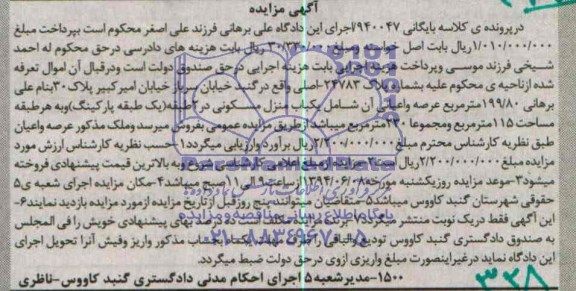 آگهی مزایده
درپرونده ی کلاسه بایگانی ۹۴۰۰۴۷/اجرای این دادگاه علی برهانی فرزند علی اصغر محکوم است بپرداخت مبلغ
۱/۰۱۰/۰۰۰/۰۰۰ریال بابت اصل خواسته و مبلغ ریال بابت هزینه های دادرسی درحق محکوم له احمد
شیخی فرزند موسی وپرداخت هزینه اجرایی بابت هزینه اجرایی درحق صندوق دولت است ودرقبال آن اموال تعرفه
شده ازناحیه ی محکوم علیه بشماره پلاک ۲۴۷۸۳-اصلی واقع درگنبد خیابان سرباز خیابان امیرکبیر پلاک ۳۰بنام علی
برهانی ۱۹۹/۸۰مترمربع عرصه واعیانی آن شامل یکباب منزل مسکونی در ۲طبقه(یک طبقه پارکینگ)وبه هرطبقه
مساحت ۱۱۵مترمربع ومجموعا ۲۳۰مترمربع میباشد ازطریق مزایده عمومی بفروش میرسد وملک مذکور عرصه واعیان
طبق نظریه کارشناس محترم مبلغ ۲/۲۰۰/۰۰۰/۰۰۰ریال برآورد وارزیابی میگردد۱-حسب نظریه کارشناس ارزش مورد
مزایده مبلغ ۲/۲۰۰/۰۰۰/۰۰۰ریال است۲-مزایده ازمبلغ اعلامی کارشناسی شروع وبه بالاترین قیمت پیشنهادی فروخته
میشود۳-موعد مزایده روزیکشنبه مورخه ۱۳۹۴/۰۶/ ازساعت ۹ الی ۱۱ صبح میباشد۴-مکان مزایده اجرای شعبه ی۵
حقوقی شهرستان گنبد کاووس میباشد۵-متقاضیان میتوانند پنج روزقبل ازتاریخ مزایده ازمورد مزایده بازدید نمایند۶-
این آگهی فقط دریک نوبت منتشر میگردد۷-برنده مزایده مکلف است ده درصد بهای پیشنهادی خویش را فی المجلس
به صندوق دادگستری گنبد کاووس تودیع والباقی را ظرف مهلت یکماه بحساب مذکور واریز وفیش آنرا تحویل اجرای
این دادگاه نماید درغیراینصورت مبلغ واریزی ازوی درحق دولت ضبط میگردد.
۱۵۰۰-مدیرشعبه ۵ اجرای احکام مدنی دادگستری گنبد کاووس-ناظری
۳۳۸
پایگاه اطلاع رسانی مناقصه ومزایده
۰۲۱-۸۸۳۴۹۶۷۰-۵